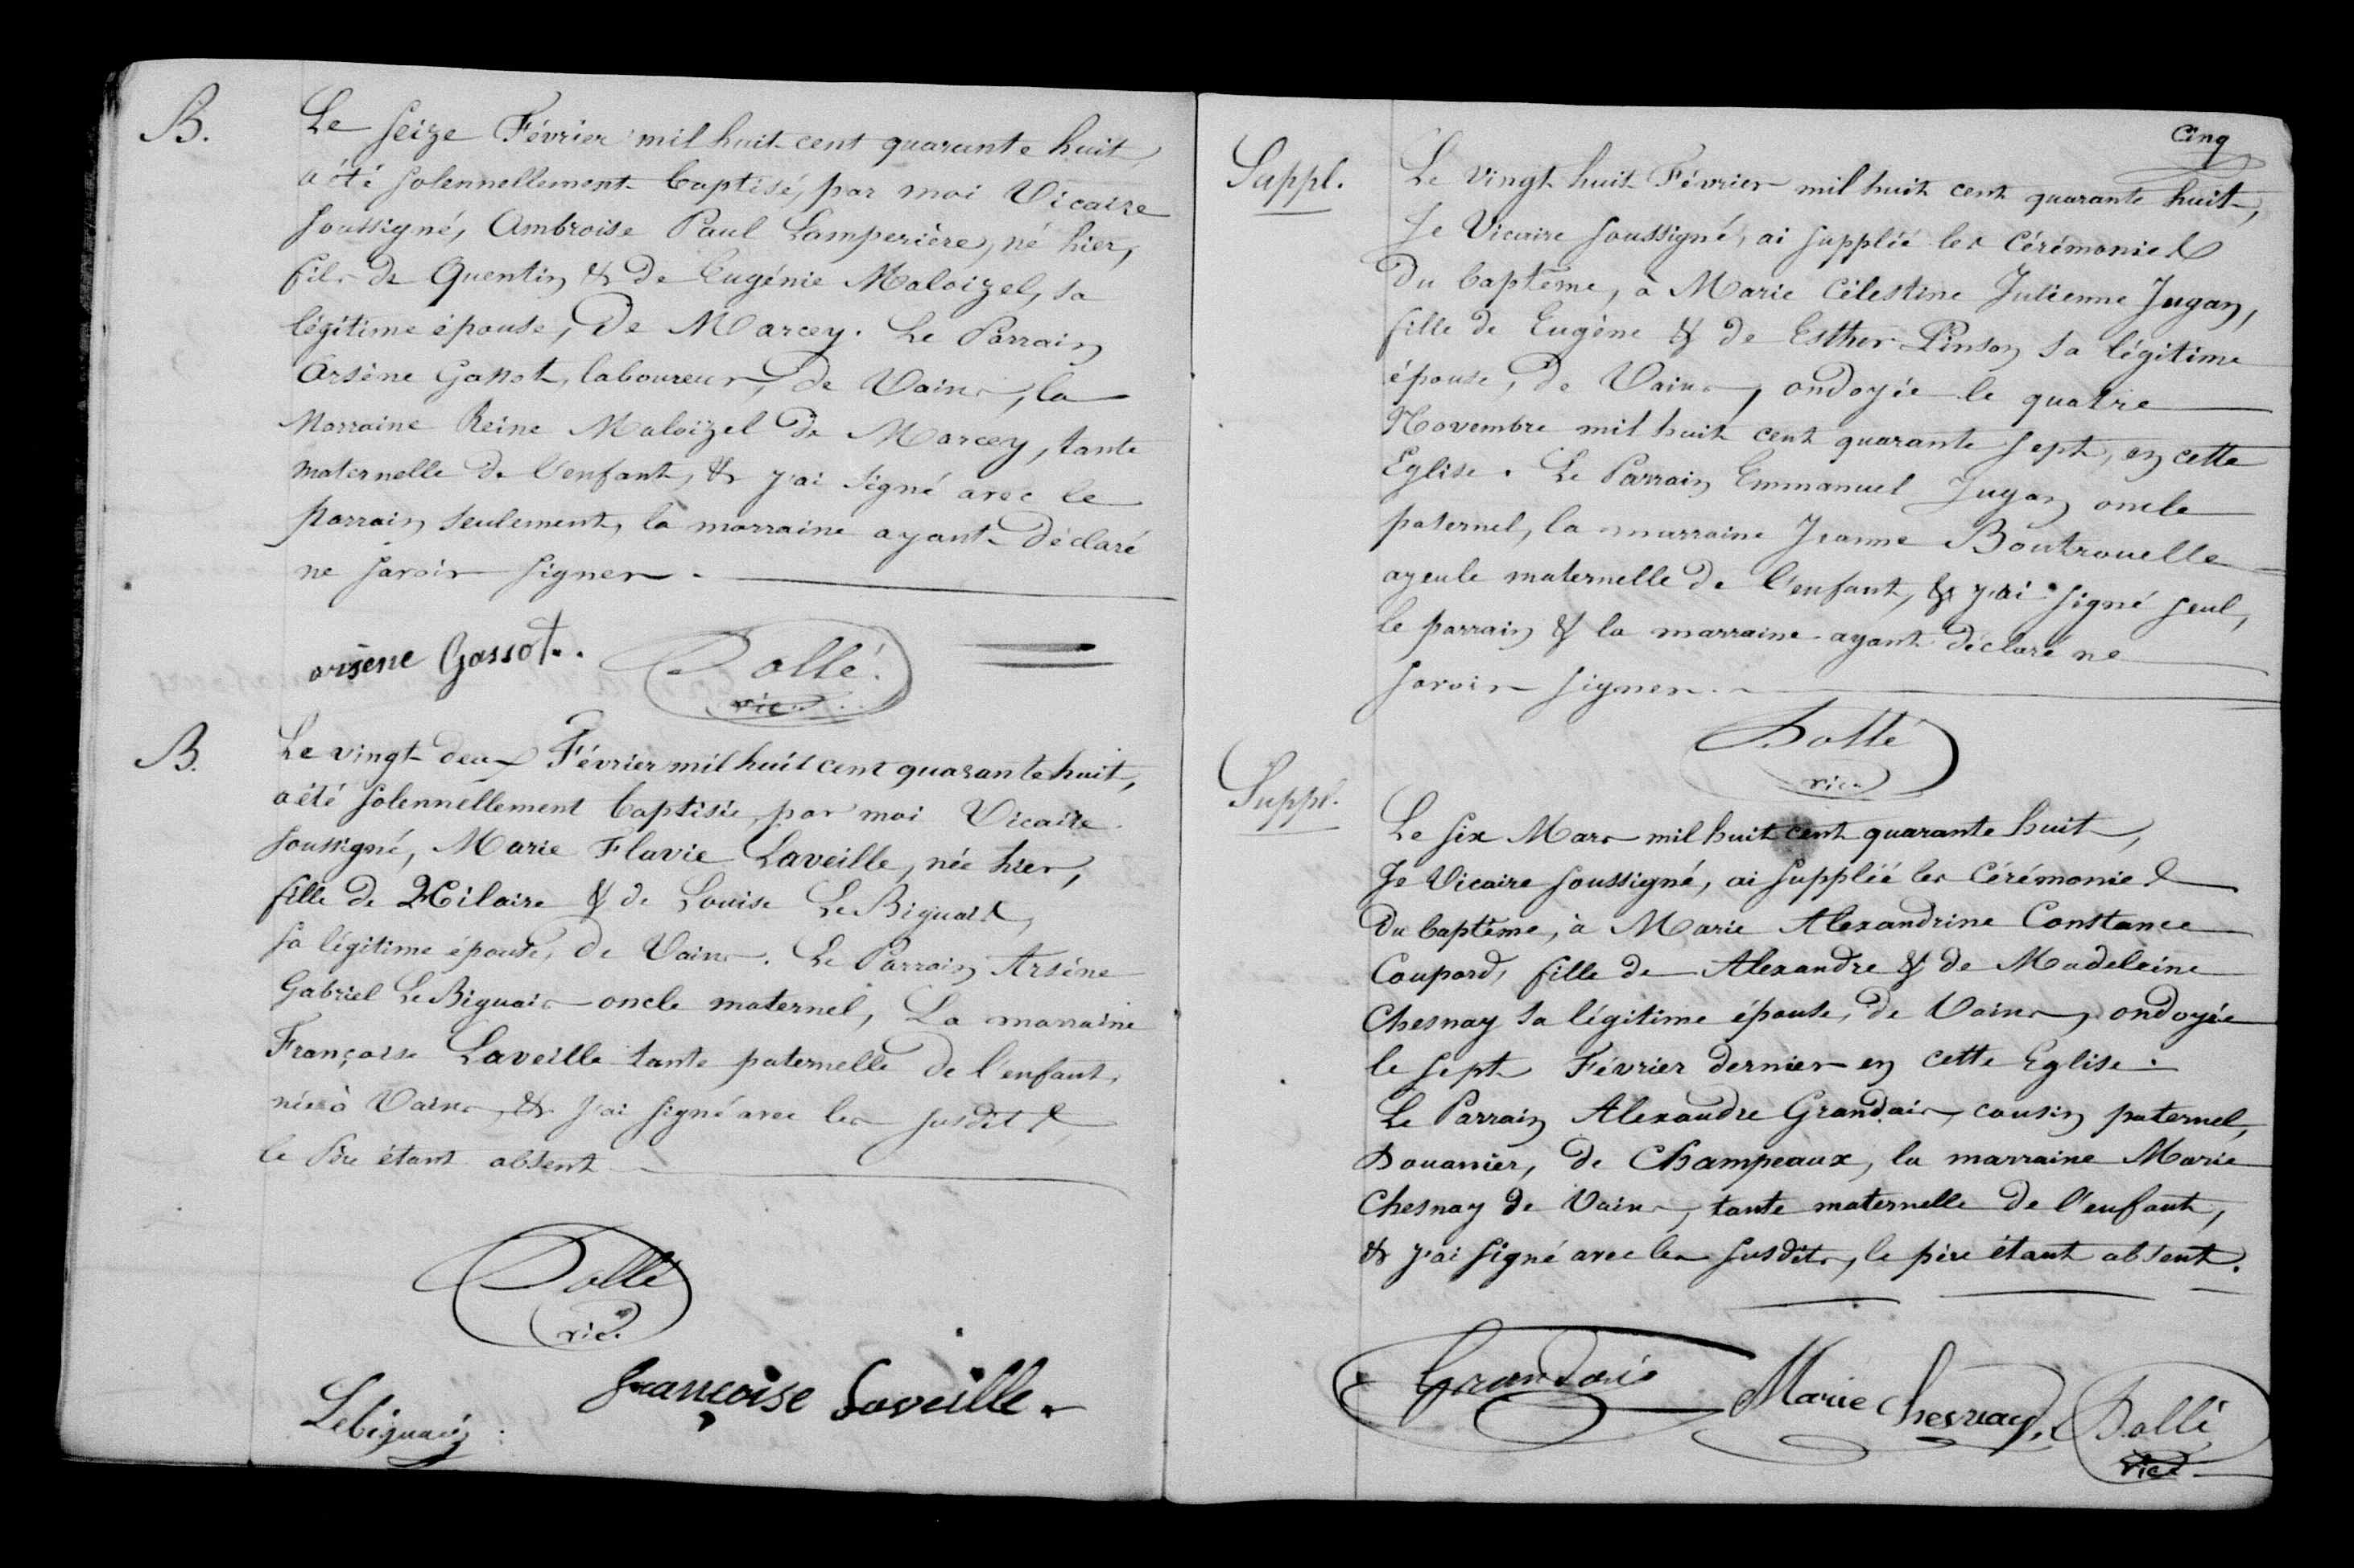 B.
Le seize Février mil huit cent quarante huit,
a été solennellement baptisé, par moi Vicaire
soussigné, Ambroise Paul Lamperière, né hier,
fils de Quentin & de Eugénie Maloizel, sa
légitime épouse, de Marcey. Le Parrain
Arsène Gassot, laboureur, de Vains, la
Marraine Reine Maloizel de Marcey, tante
maternelle de l'enfant, & j'ai signé avec le
parrain seulement, la marraine ayant déclaré
ne savoir signer.
arsene Gassot.
Dollé
vic.
B.
Le vingt deux Février mil huit cent quarante huit,
a été solennellement baptisée, par moi Vicaire
soussigné, Marie Flavie Laveille, née hier,
fille de Hilaire & de Louise Le Biguais,
sa légitime épouse, de Vains. Le Parrain Arsène
Gabriel Le Biguais oncle maternel, La marraine
Françoise Laveille tante paternelle de l'enfant,
nés à Vains, & j'ai signé avec les susdits,
le Père étant absent
Dollé
vic.
Lebiguais
françoise Laveille.
Cinq
Suppl.
Le vingt huit Février mil huit cent quarante huit,
Je Vicaire soussigné, ai supplié les Cérémonies
du baptême, à Marie Célestine Julienne Jugan,
fille de Eugène & de Esther Pinson sa légitime
épouse, de Vains, ondoyée le quatre
Novembre mil huit cent quarante sept, en cette
Eglise. Le Parrain Emmanuel Jugan oncle
paternel, la marraine Jeanne Boutrouelle
ayeule maternelle de l'enfant, & j'ai signé seul,
le parrain & la marraine ayant déclaré ne
savoir signer.
Dollé
vic.
Suppl.
Le six Mars mil huit cent quarante huit,
Je Vicaire soussigné, ai supplié les Cérémonies
du baptême, à Marie Alexandrine Constance
Coupard, fille de Alexandre & de Madeleine
Chesnay sa légitime épouse, de Vains, ondoyée
le sept Février dernier en cette Eglise.
Le Parrain Alexandre Grandais, cousin paternel,
Douanier, de Champeaux, la marraine Marie
Chesnay de Vains, tante maternelle de l'enfant,
& j'ai signé avec les susdits, le père étant absent.
Grandais
Marie Chesnay.
Dollé
vic.